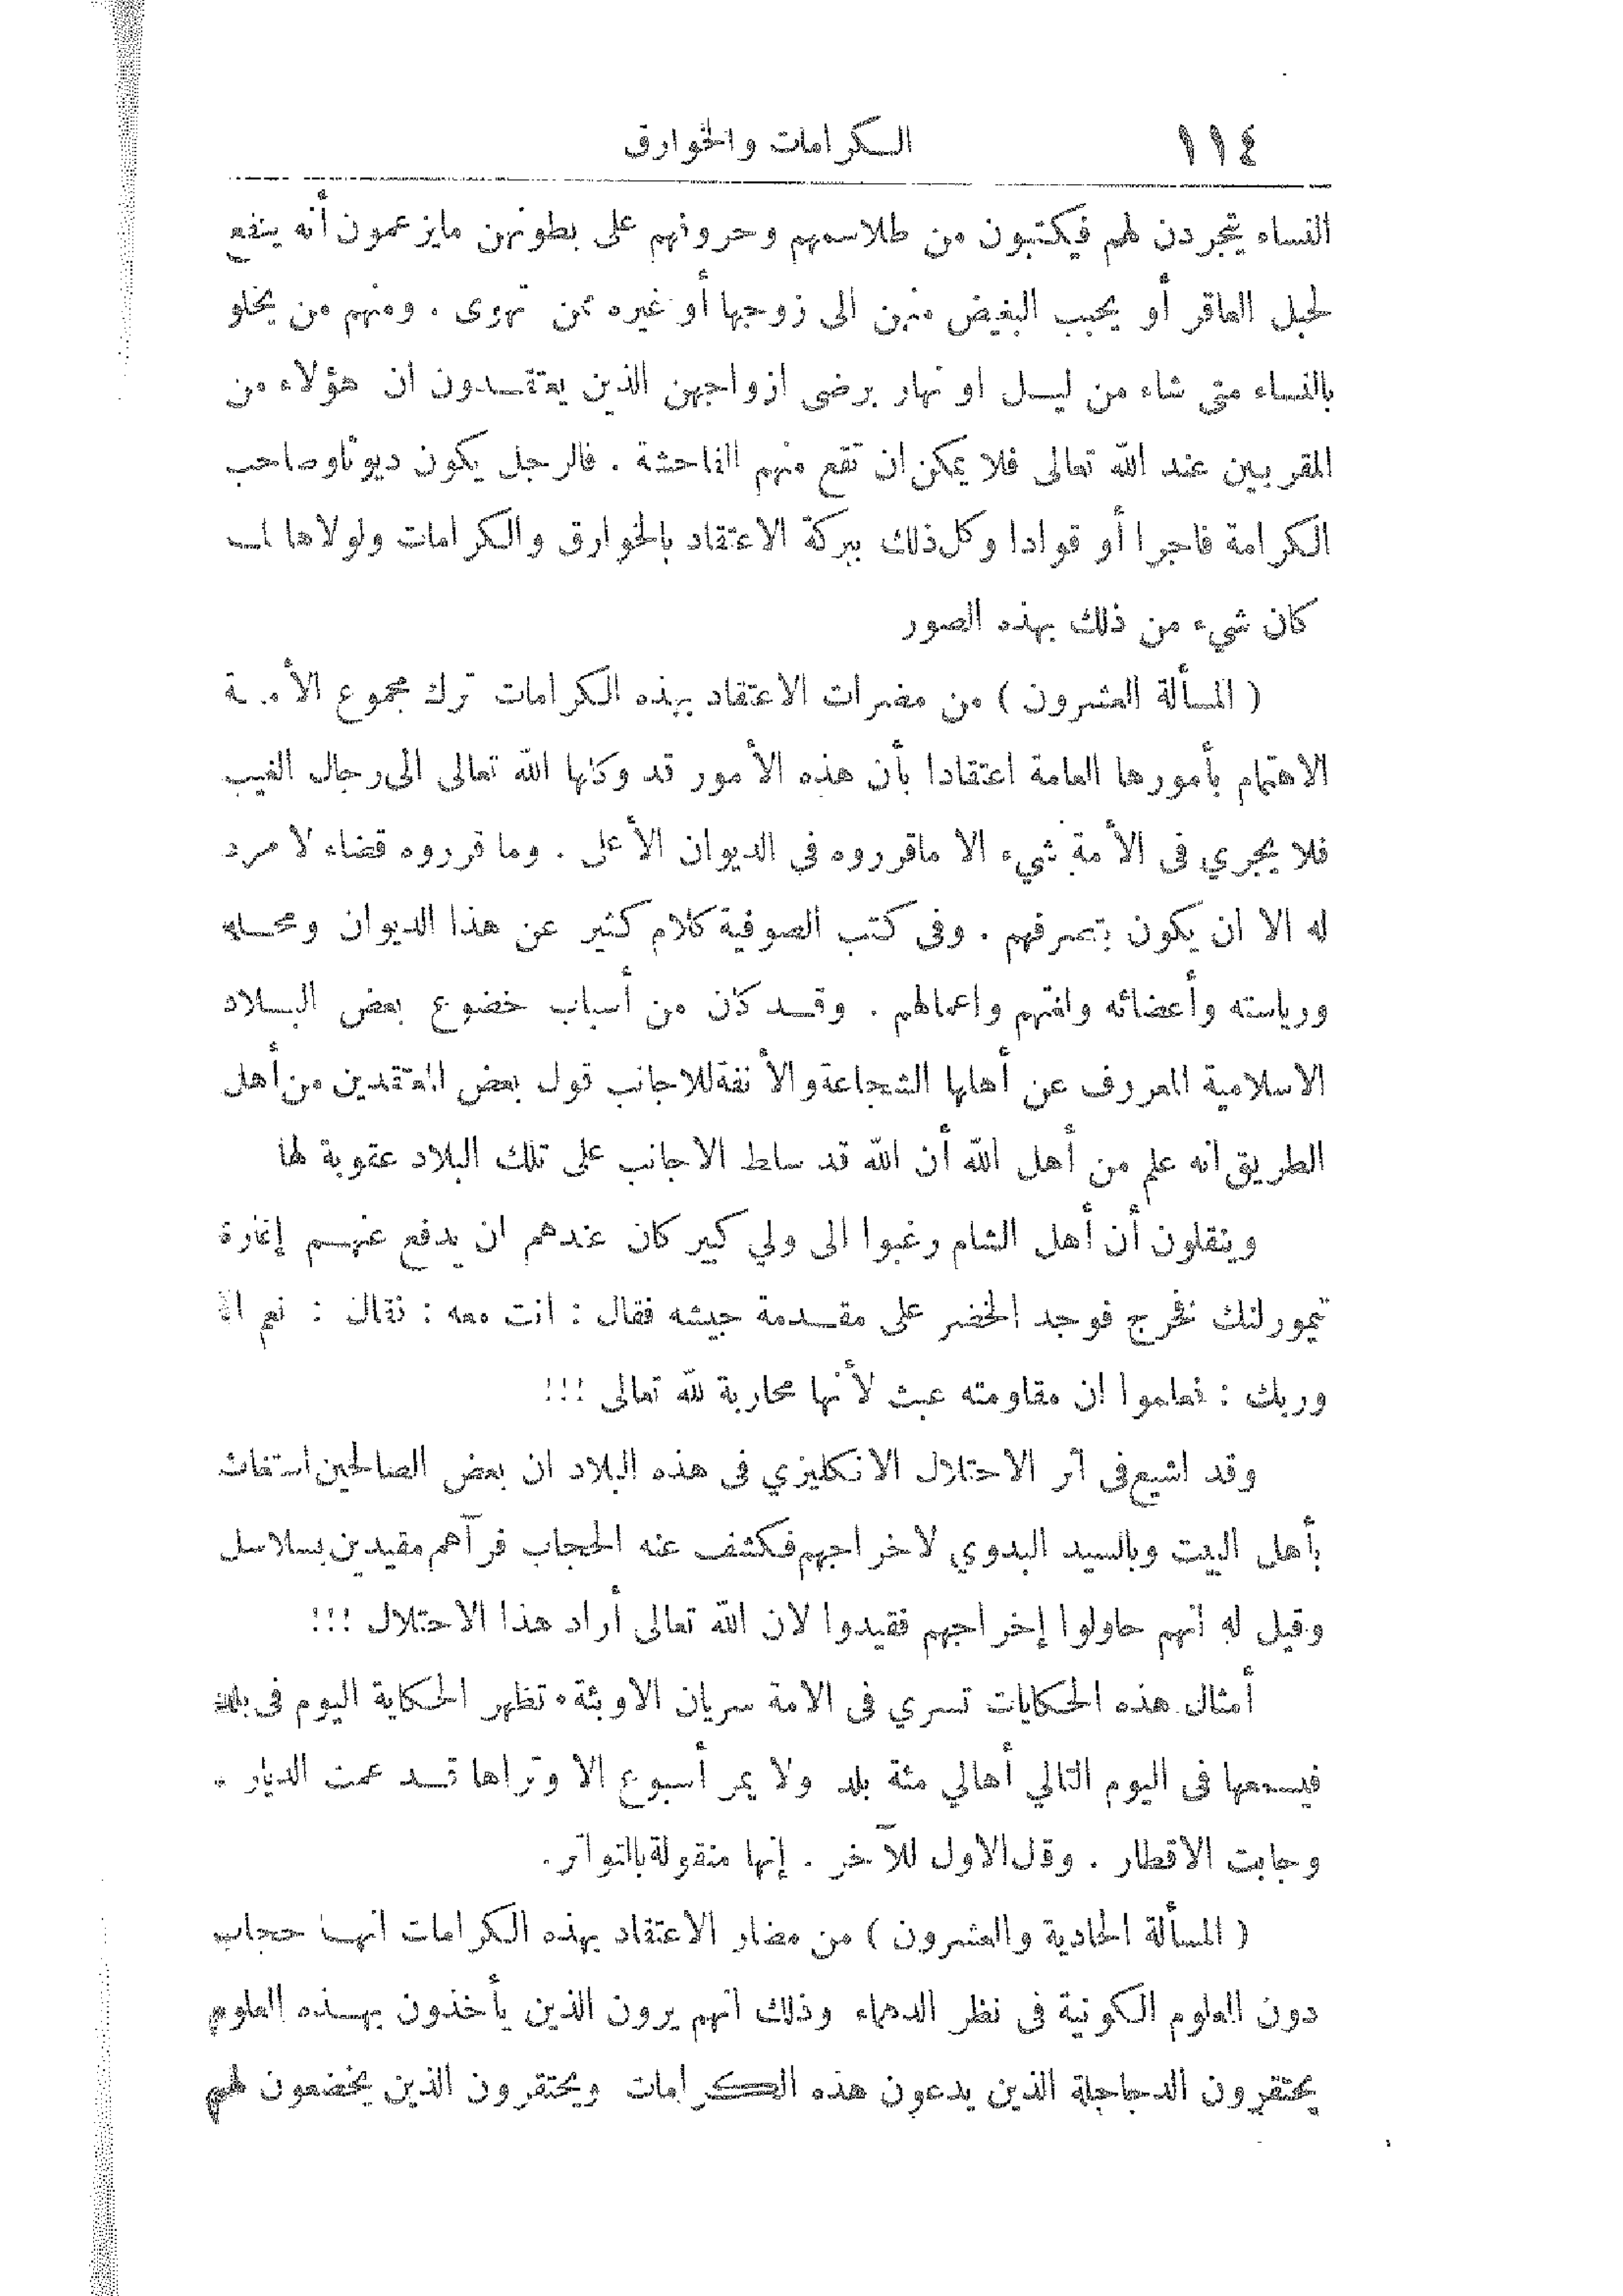 ١١٤ الكرامات والخوارق
النساء يتجردن لهم فيكتبون من طلاسمهم وحروفهم على بطونهن مايزعمون أنه ينفع
لحبل العاقر أو يحبب البغيض منهن الى زوجها أو غيره ممن تهوى . ومنهم من يخلو
بالنساء متى شاء من ليل او نهار برضى ازواجهن الذين يعتقدون ان هؤلاء من
المقربين عند الله تعالى فلا يمكن ان تقع منهم الفاحشة . فالرجل يكون ديوثا وصاحب
الكرامة فاجرا أو قوادا وكل ذلك ببركة الاعتقاد بالخوارق والكرامات ولولاها لما
كان شيء من ذلك بهذه الصور
( المسألة العشرون ) من مضرات الاعتقاد بهذه الكرامات ترك مجموع الأمة
الاهتمام بأمورها العامة اعتقادا بأن هذه الأمور قد وكلها الله تعالى الى رجال الغيب
فلا يجري فى الأمة شيء الا ماقرروه في الديوان الأعلى . وما قرروه قضاء لا مرد
له الا ان يكون بتصرفهم . وفى كتب الصوفية كلام كثير عن هذا الديوان ومحله
ورياسته وأعضائه ولغتهم واعمالهم . وقد كان من أسباب خضوع بعض البلاد
الاسلامية المعروف عن أهلها الشجاعة والأنفة للاجانب قول بعض المعتقدين من أهل
الطريق انه علم من أهل الله أن الله قد سلط الاجانب على تلك البلاد عقوبة لها
وينقلون أن أهل الشام رغبوا الى ولي كبير كان عندهم ان يدفع عنهم إغارة
تيمورلنك فخرج فوجد الخضر على مقدمة جيشه فقال : أنت معه : فقال : نعم انا
وربك : فعلموا ان مقاومته عبث لأنها محاربة لله تعالى !!!
وقد اشيع فى اثر الاحتلال الانكليزي فى هذه البلاد ان بعض الصالحين استغاث
بأهل البيت وبالسيد البدوي لاخراجهم فكشف عنه الحجاب فرآهم مقيدين بسلاسل
وقيل له انهم حاولوا إخراجهم فقيدوا لان الله تعالى أراد هذا الاحتلال !!!
أمثال هذه الحكايات تسري فى الامة سريان الاوبئة . تظهر الحكاية اليوم فى بلد
فيسمعها فى اليوم التالي أهالي مئة بلد ولا يمر أسبوع الا وتراها قد عمت الديار .
وجابت الاقطار . وقال الاول للآخر . إنها منقولة بالتواتر .
( المسألة الحادية والعشرون ) من مضار الاعتقاد بهذه الكرامات انها حجاب
دون العلوم الكونية فى نظر الدهماء وذلك انهم يرون الذين يأخذون بهذه العلوم
يحتقرون الدجاجلة الذين يدعون هذه الكرامات ويحتقرون الذين يخضعون لهم